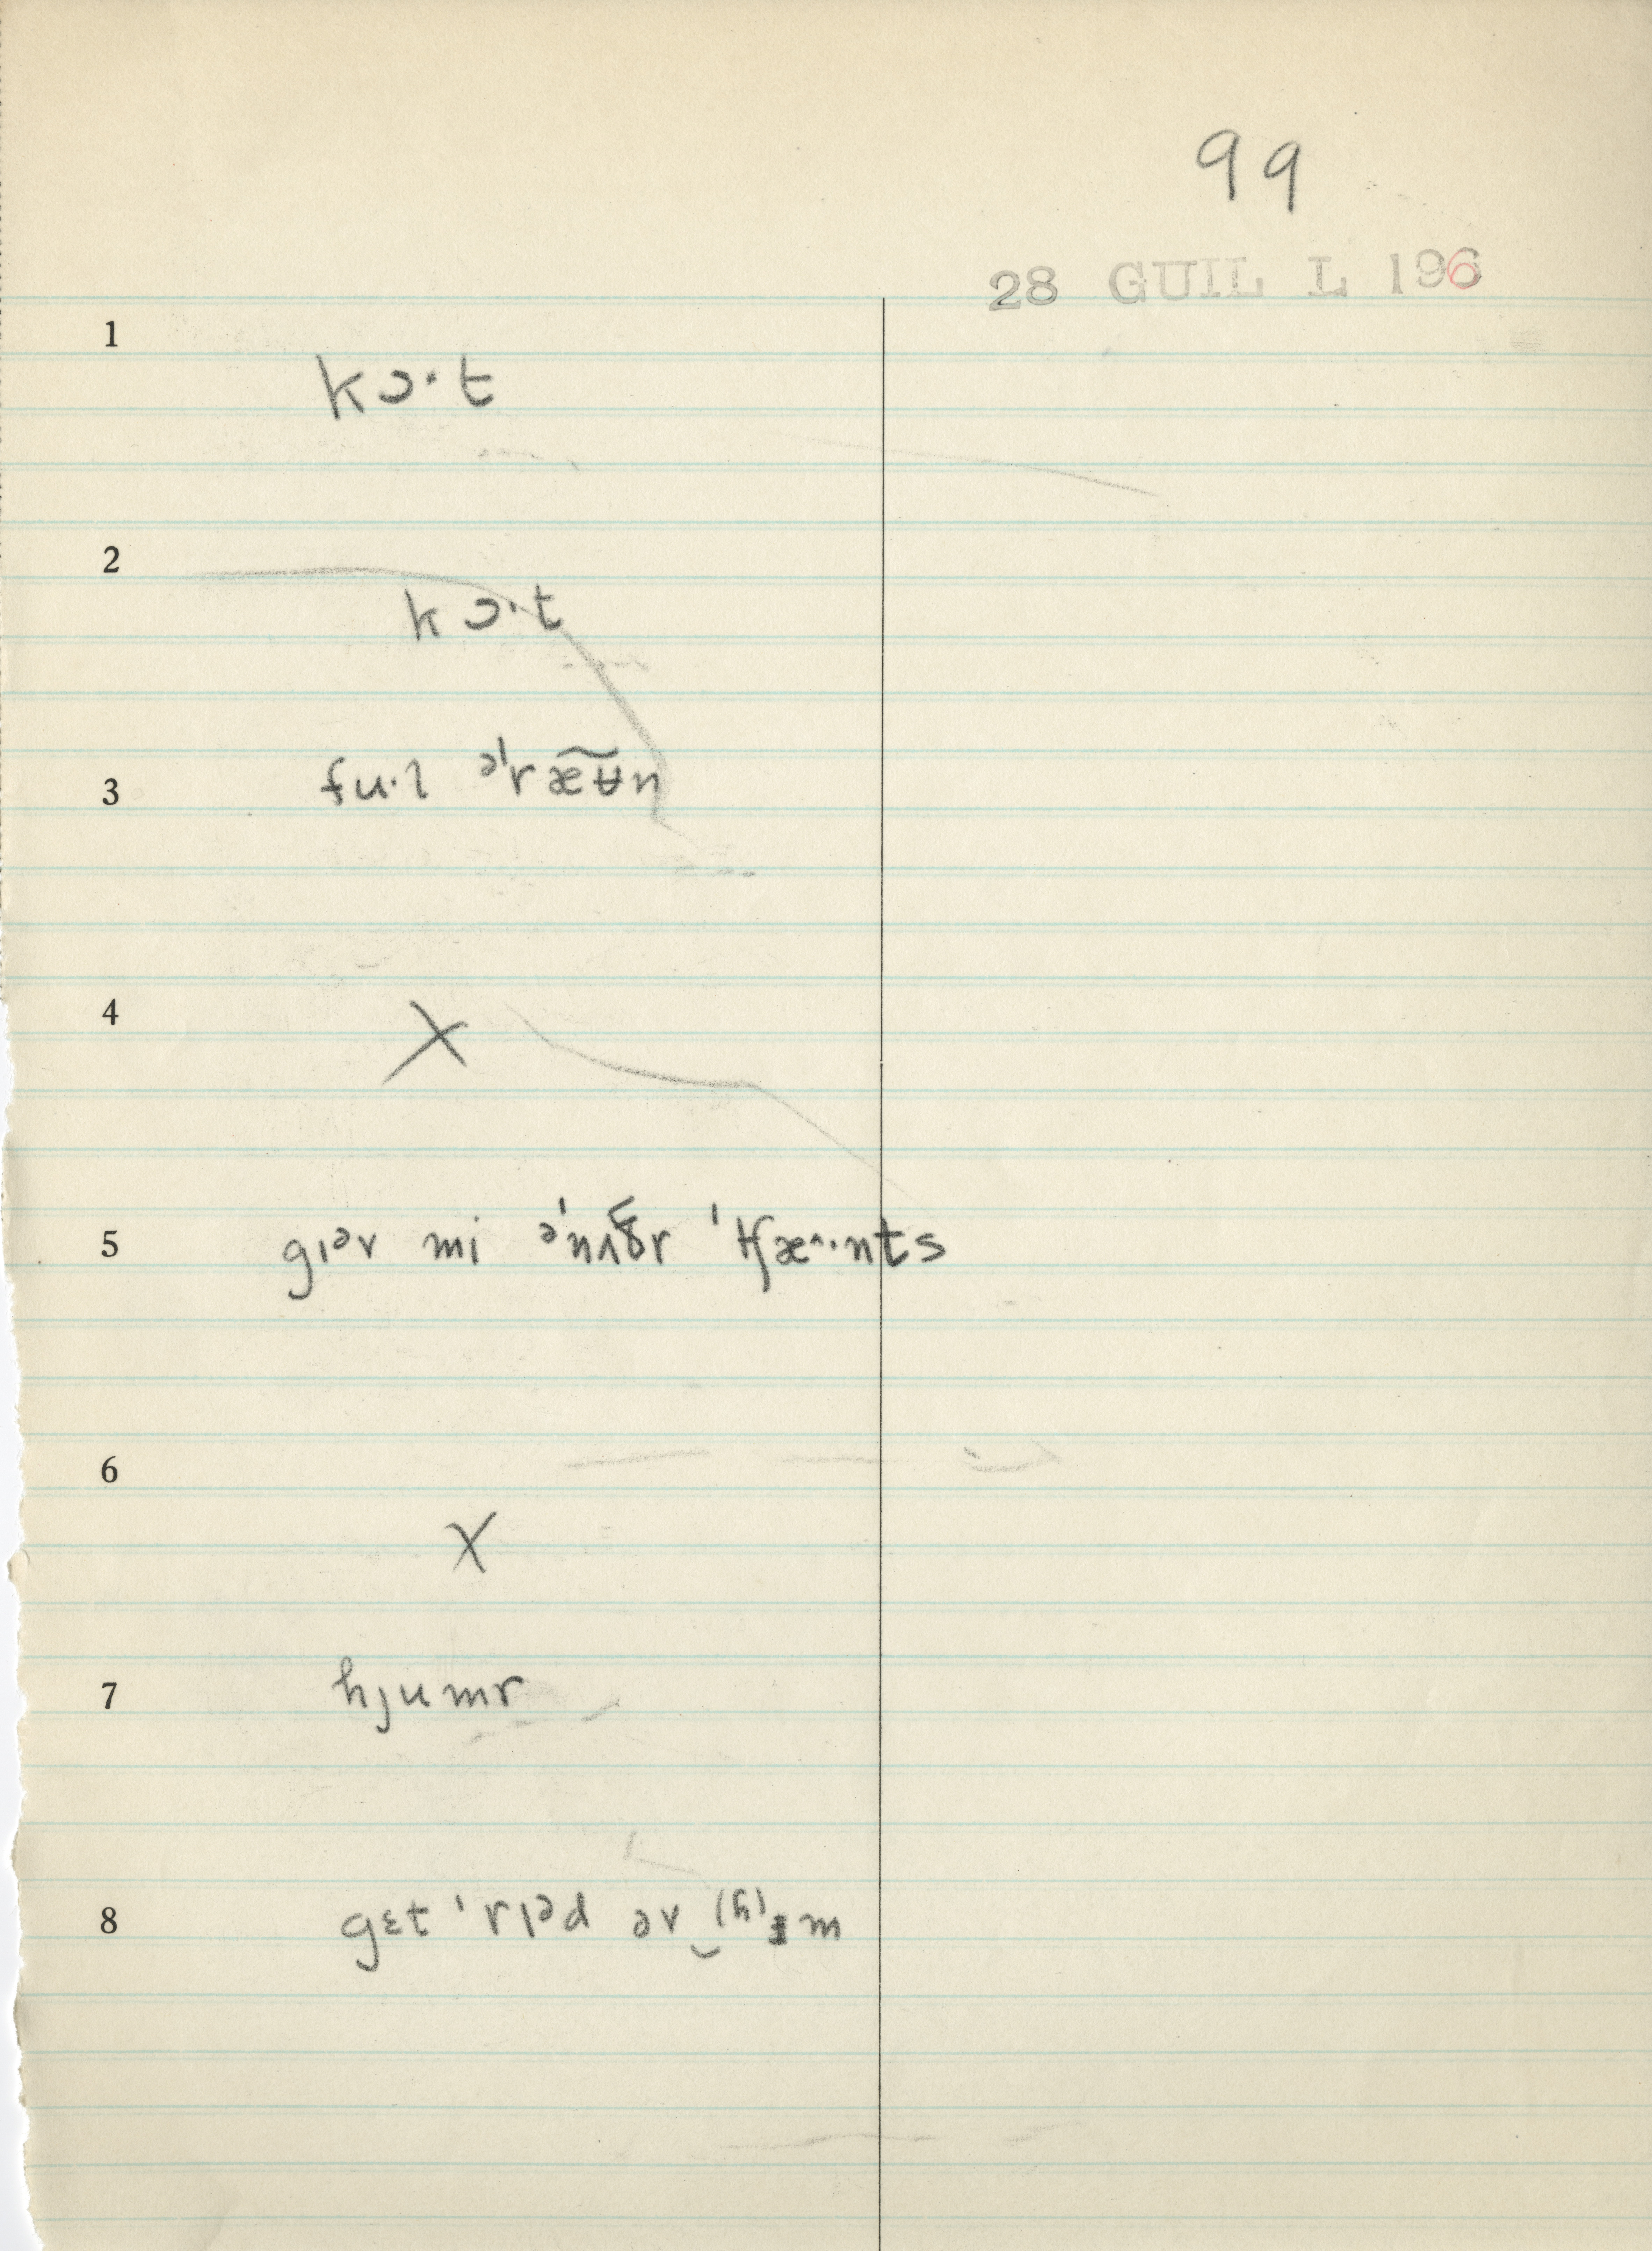 99
28 GUIL L 196
1
kɔ·t
2
kɔ·t
3
fu·l ə'ræʉ̃n
4
X
5
gɪᵊv mi ə'nʌðr 'tʃæ^·nts
6
X
7
hjumr
8
gɛt 'rɪᵊd əv‿(h)ɪm